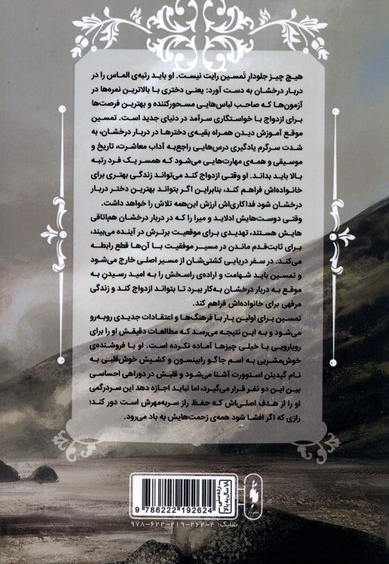 هیچ چیز جلودار تمسین رایت نیست. او باید رتبه‌ی الماس را در
دربار درخشان به دست آورد: یعنی دختری با بالاترین نمره‌ها در
آزمون‌ها که صاحب لباس‌هایی مسحورکننده و بهترین فرصت‌ها
برای ازدواج با خواستگاری سرآمد در دنیای جدید است. تمسین
موقع آموزش دیدن همراه بقیه‌ی دخترها در دربار درخشان، به
شدت سرگرم یادگیری درس‌هایی راجع‌به آداب معاشرت، تاریخ و
موسیقی و همه‌ی مهارت‌هایی می‌شود که همسر یک فرد رتبه
بالا باید بداند. او وقتی ازدواج کند می‌تواند زندگی بهتری برای
خانواده‌اش فراهم کند، بنابراین اگر بتواند بهترین دختر دربار
درخشان شود فداکاری‌اش ارزش این‌همه تلاش را خواهد داشت.
وقتی دوست‌هایش ادلاید و میرا را که در دربار درخشان هم‌اتاقی
هایش هستند، تهدیدی برای موقعیت برترش در آینده می‌بیند،
برای ثابت‌قدم ماندن در مسیر موفقیت با آن‌ها قطع رابطه
می‌کند. در سفر دریایی کشتی‌شان از مسیر اصلی خارج می‌شود
و تمسین باید شهامت و اراده‌ی راسخش را به امید رسیدن به
موقع به دربار درخشان به‌کار ببرد تا بتواند ازدواج کند و زندگی
مرفهی برای خانواده‌اش فراهم کند.
تمسین برای اولین بار با فرهنگ‌ها و اعتقادات جدیدی روبه‌رو
می‌شود و به این نتیجه می‌رسد که مطالعات دقیقش او را برای
رویارویی با خیلی چیزها آماده نکرده است. او با فروشنده‌ی
خوش‌مشربی به اسم جاگو رابینسون و کشیش خوش‌قلبی به
نام گیدئن استوورت آشنا می‌شود و قلبش در دوراهی احساسی
بین این دو نفر قرار می‌گیرد، اما نباید اجازه دهد این سردرگمی
او را از هدف اصلی‌اش که حفظ راز سربه‌مهرش است دور کند؛
رازی که اگر افشا شود همه‌ی زحمت‌هایش به باد می‌رود.
رده‌سنی
۱۸ سال به بالا
9 786222 192624
شابک: ۹۷۸-۶۲۲-۲۱۹-۲۶۲-۴